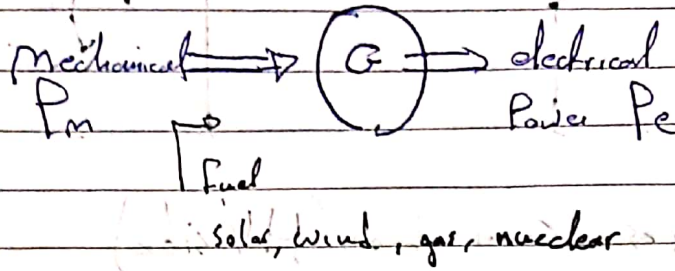 Mechanical G electrical
Pm Power Pe
fuel
solar, wind, gas, nucclear